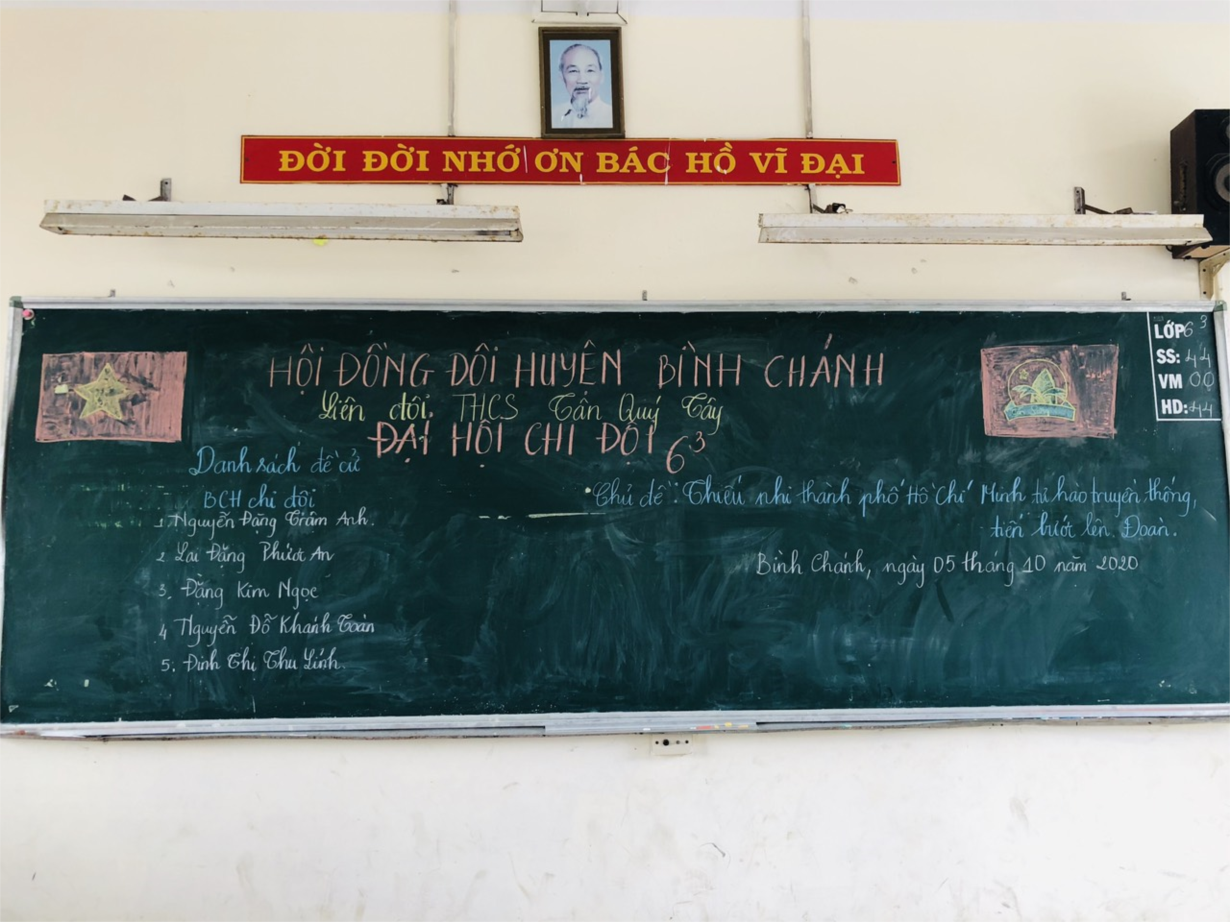 ĐỜI ĐỜI NHỚ ƠN BÁC HỒ VĨ ĐẠI
HỘI ĐỒNG ĐỘI HUYỆN BÌNH CHÁNH
Liên đội THCS Tân Quý Tây
ĐẠI HỘI CHI ĐỘI 6³
LỚP 6³
SS: 44
VM 00
HD: 44
Danh sách đề cử
BCH chi đội
1. Nguyễn Đặng Trâm Anh.
2. Lại Đặng Phước An
3. Đặng Kim Ngọc
4 Nguyễn Đỗ Khánh Toàn
5. Đinh Thị Thu Linh.
Chủ đề: Thiếu nhi thành phố Hồ Chí Minh tự hào truyền thống,
tiến bước lên Đoàn.
Bình Chánh, ngày 05 tháng 10 năm 2020